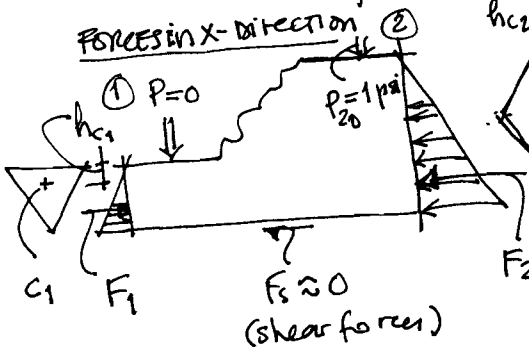 FORCES in X-DIRECTION
②
hc2
① P=0
P20=1 psi
hc1
C1
F1
Fs ≈ 0
F2
(shear forces)